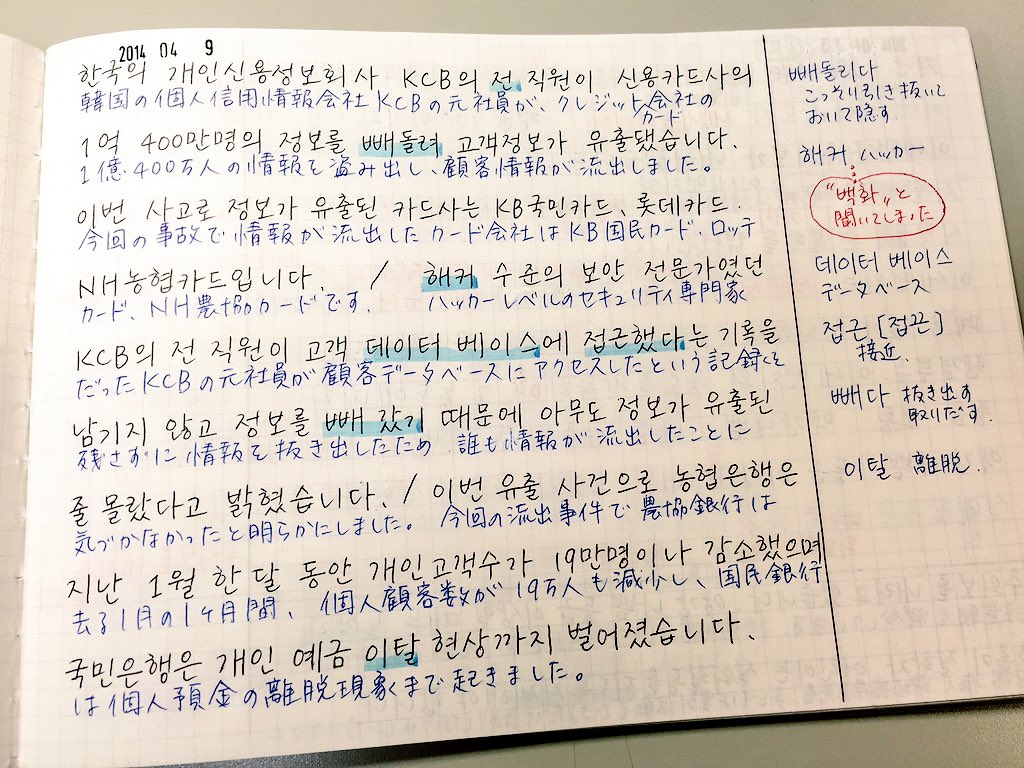 2014 04 9
한국의 개인신용정보회사 KCB의 전 직원이 신용카드사의
韓国の個人信用情報会社KCBの元社員が、クレジットカード会社の
1억 400만명의 정보를 빼돌려 고객정보가 유출됐습니다.
1億400万人の情報を盗み出し、顧客情報が流出しました。
이번 사고로 정보가 유출된 카드사는 KB국민카드、롯데카드.
今回の事故で情報が流出したカード会社はKB国民カード、ロッテ
NH농협카드입니다. / 해커 수준의 보안 전문가였던
カード、NH農協カードです. ハッカーレベルのセキュリティ専門家
KCB의 전 직원이 고객 데이터 베이스에 접근했다는 기록을
だったKCBの元社員が顧客データベースにアクセスしたという記録を
남기지 않고 정보를 빼 갔기 때문에 아무도 정보가 유출된
残さずに情報を抜き出したため 誰も情報が流出したことに
줄 몰랐다고 밝혔습니다. / 이번 유출 사건으로 농협은행은
気づかなかったと明らかにしました。 今回の流出事件で農協銀行は
지난 1월 한 달 동안 개인고객수가 19만명이나 감소했으며
去る1月の1ヶ月間、個人顧客数が19万人も減少し、国民銀行
국민은행은 개인 예금 이탈 현상까지 벌어졌습니다.
は個人預金の離脱現象まで起きました。
빼돌리다
こっそり引き抜いて
おいて隠す.
해커 ハッカー
"백화"と
聞いてしまった
데이터 베이스
データベース
접근 [접끈]
接近.
빼다 抜き出す
取りだす.
이탈 離脱.